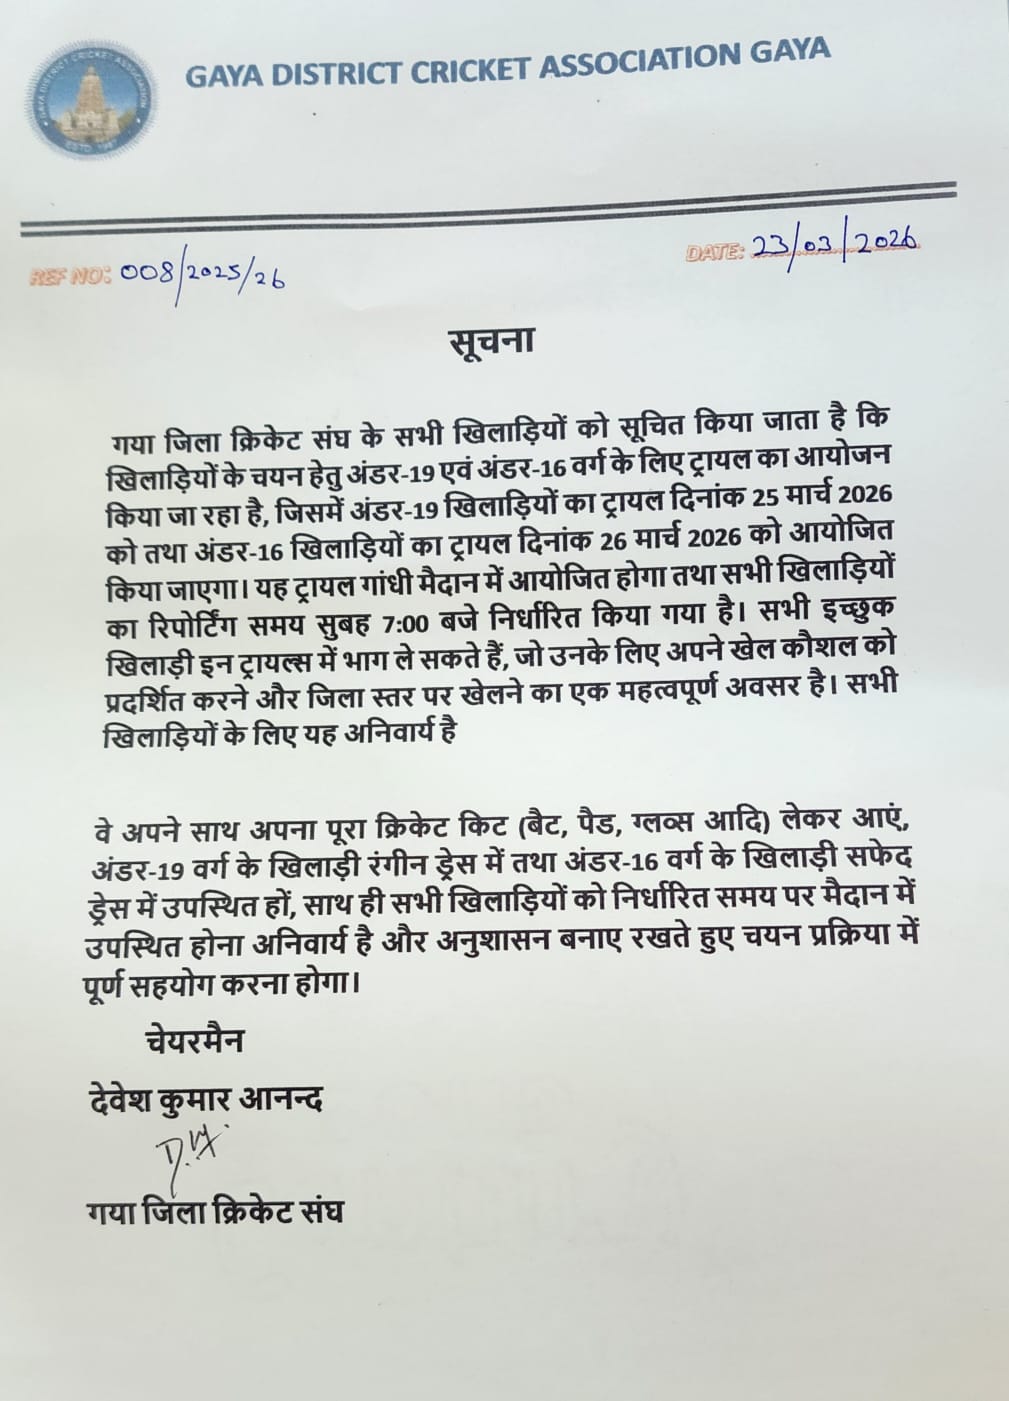 GAYA DISTRICT CRICKET ASSOCIATION
ESTD. 1987
GAYA DISTRICT CRICKET ASSOCIATION GAYA
REF NO: 008/2025/26
DATE: 23/03/2026
सूचना
गया जिला क्रिकेट संघ के सभी खिलाड़ियों को सूचित किया जाता है कि
खिलाड़ियों के चयन हेतु अंडर-19 एवं अंडर-16 वर्ग के लिए ट्रायल का आयोजन
किया जा रहा है, जिसमें अंडर-19 खिलाड़ियों का ट्रायल दिनांक 25 मार्च 2026
को तथा अंडर-16 खिलाड़ियों का ट्रायल दिनांक 26 मार्च 2026 को आयोजित
किया जाएगा। यह ट्रायल गांधी मैदान में आयोजित होगा तथा सभी खिलाड़ियों
का रिपोर्टिंग समय सुबह 7:00 बजे निर्धारित किया गया है। सभी इच्छुक
खिलाड़ी इन ट्रायल्स में भाग ले सकते हैं, जो उनके लिए अपने खेल कौशल को
प्रदर्शित करने और जिला स्तर पर खेलने का एक महत्वपूर्ण अवसर है। सभी
खिलाड़ियों के लिए यह अनिवार्य है
वे अपने साथ अपना पूरा क्रिकेट किट (बैट, पैड, ग्लव्स आदि) लेकर आएं,
अंडर-19 वर्ग के खिलाड़ी रंगीन ड्रेस में तथा अंडर-16 वर्ग के खिलाड़ी सफेद
ड्रेस में उपस्थित हों, साथ ही सभी खिलाड़ियों को निर्धारित समय पर मैदान में
उपस्थित होना अनिवार्य है और अनुशासन बनाए रखते हुए चयन प्रक्रिया में
पूर्ण सहयोग करना होगा।
चेयरमैन
देवेश कुमार आनन्द
गया जिला क्रिकेट संघ